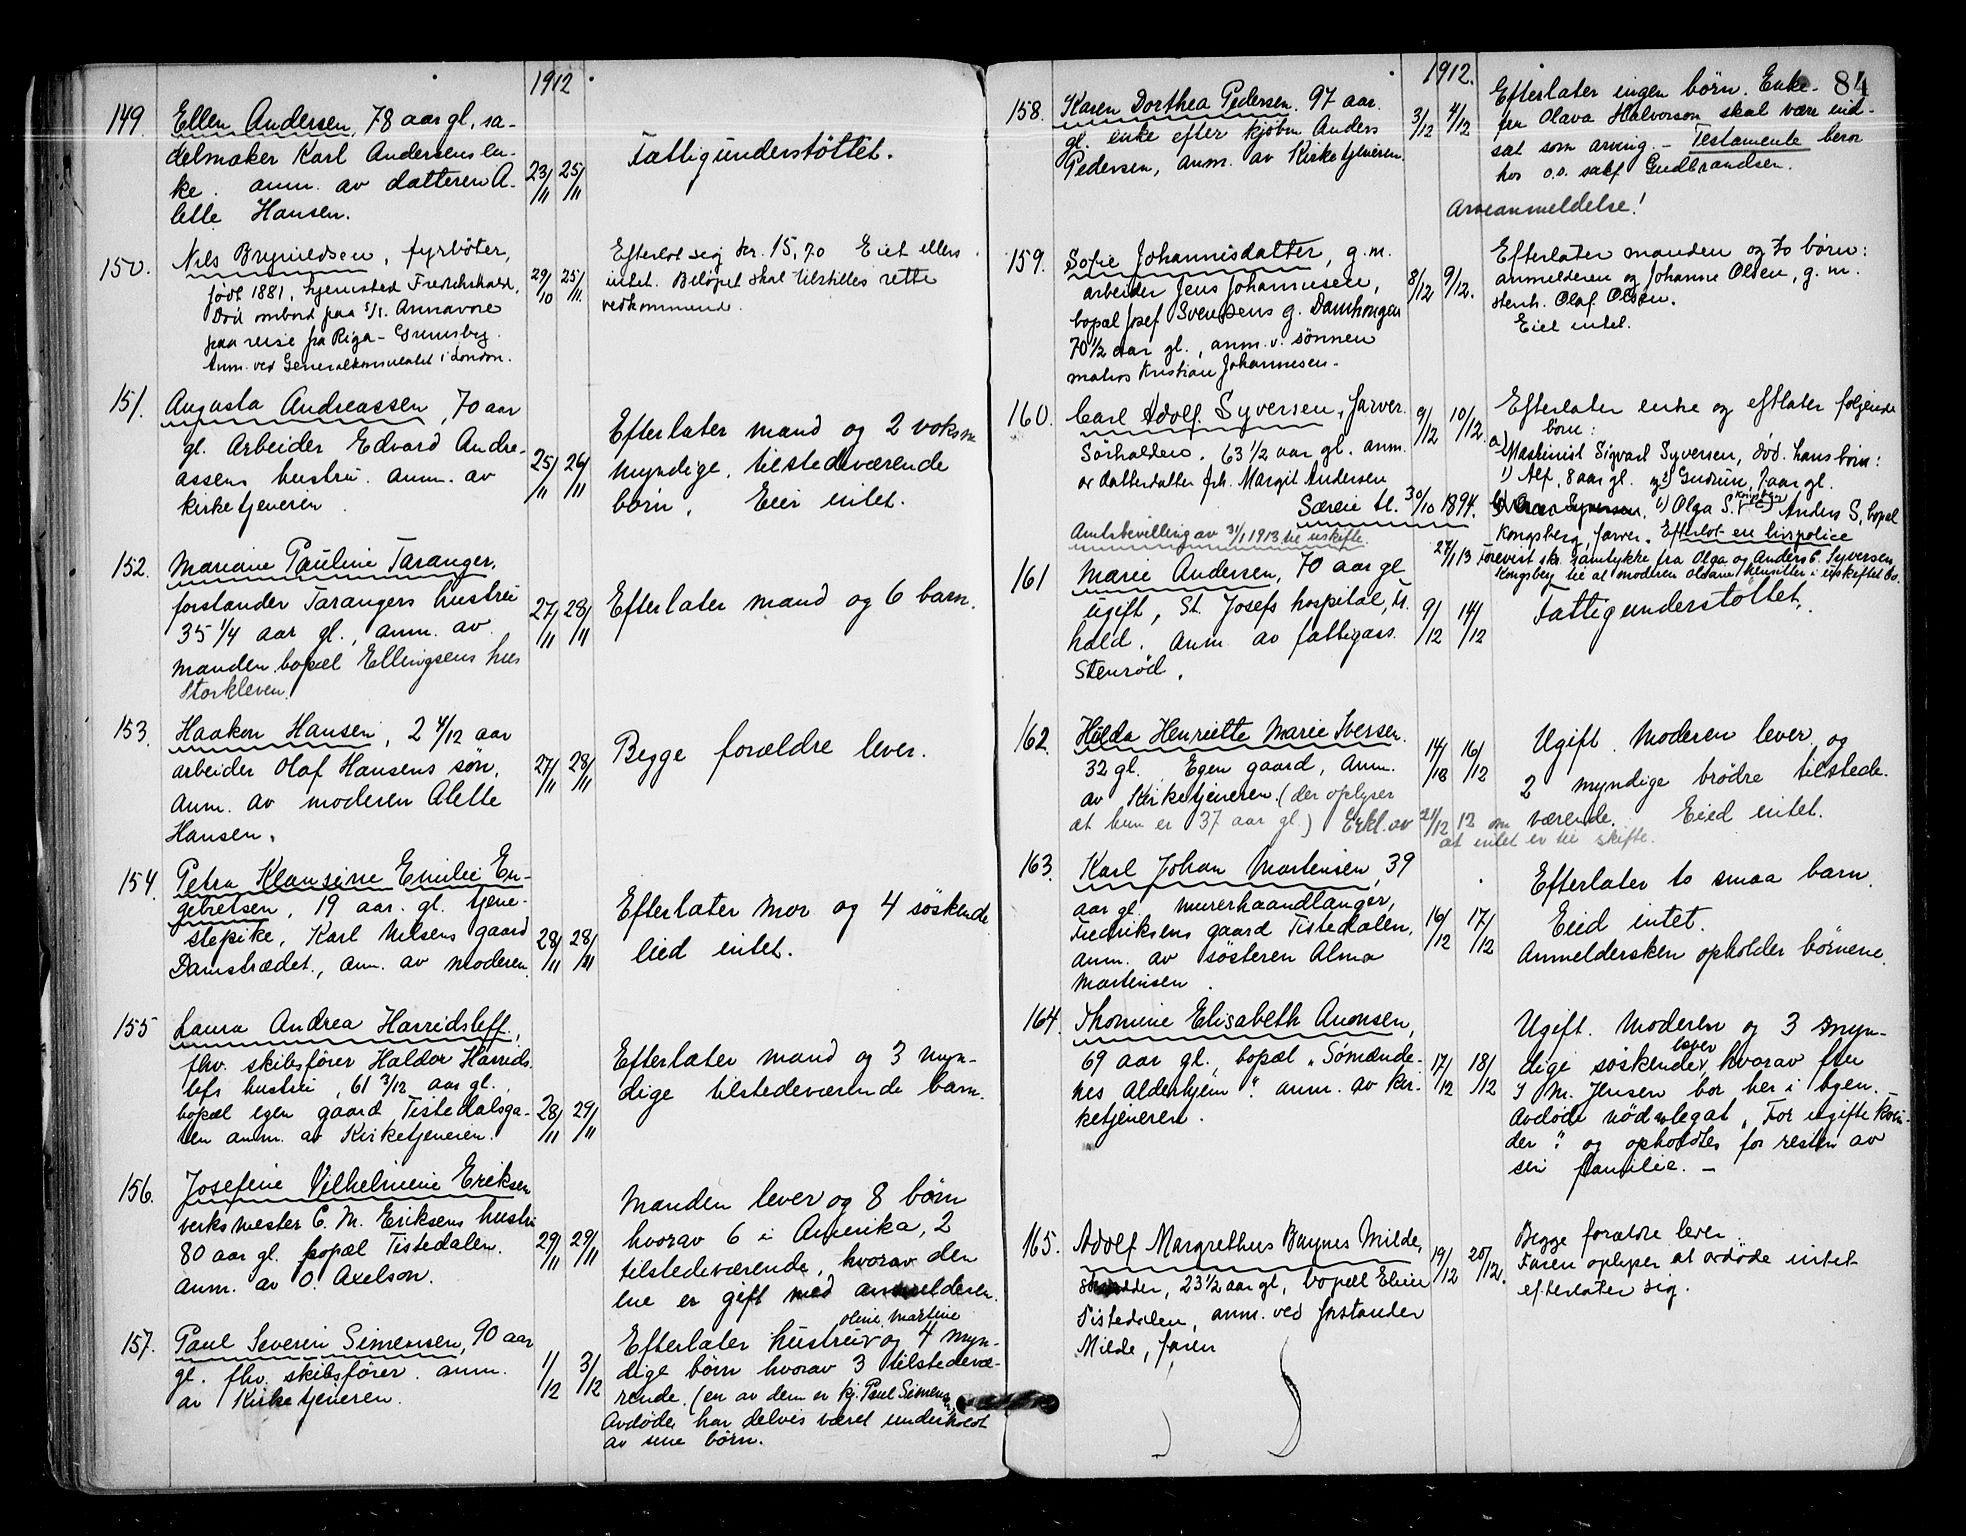 1912
149. Ellen Andersen, 78 aar gl, sa-
delmaker Karl Andersens en-
ke. anm. av datteren A-
lette Hansen.
23/11 25/11
Fattigunderstöttet.
150. Nils Brynildsen, fyrböter,
født 1881, hjemsted Fredrikshald,
Död ombord paa s/s. Annavore
paa reise fra Riga - Grimsby.
Anm. ved Generalkonsulatet i London.
29/10 25/11.
Efterlot sig kr. 15,70 Eiet ellers
intet. Belöpet skal tilstilles rette
vedkommend.
151. Augusta Andreassen, 70 aar
gl. Arbeider Edvard Andre-
assens hustru. anm. av
kirketjeneren
25/11 26/11
Efterlater mand og 2 voksne
myndige, tilstedeværende
börn. Eier intet.
152. Mariane Pauline Taranger,
forstander Tarangers hustru
35 1/4 aar gl., anm. av
manden. bopæl Ellingsens hus
Storkleven.
27/11 28/11
Efterlater mand og 6 barn.
153. Haakon Hansen, 2 4/12 aar
arbeider Olaf Hansens søn,
anm. av moderen Alette
Hansen.
27/11 28/11
Begge forældre lever.
154. Petra Klausine Emilie En-
gebretsen, 19 aar. gl. tjene-
stepike, Karl Nilsens gaard
Damstrædet., anm. av moderen.
28/11 28/11
Efterlater mor og 4 söskende
Eied intet.
155 Laura Andrea Harridsleff,
fhv. skibsfører Haldor Harrids-
lefs hustru, 61 3/12 aar gl.,
bopæl egen gaard Tistedalsga-
ten anm. av Kirketjeneren.
28/11 29/11
Efterlater mand og 3 myn-
dige tilstedeværende barn.
156. Josefine Vilhelmine Eriksen
verksmester C. M. Eriksens hustru
80 aar gl. bopæl Tistedalen.
anm. av O. Axelson.
29/11 29/11
Manden lever og 8 börn
hvorav 6 i Amerika, 2
tilstedeværende, hvorav den
ene er gift med anmelderen.
157. Paul Severin Simensen, 90 aar
gl. fhv. skibsfører. anm.
av Kirketjeneren.
1/12 3/12
Oline Martine
Efterlater hustru og 4 myn-
dige börn hvorav 3 tilstedevæ-
rende. (en av dem er kj. Paul Simensen,
Avdöde har delvis været underholdt
av sine börn.
84
1912.
158. Karen Dorthea Pedersen. 97 aar.
gl. enke efter kjöbm Anders
Pedersen, anm. av Kirketjeneren.
3/12 4/12
Efterlater ingen börn. Enke-
fru Olava Halvorson skal være ind-
sat som arving. - Testamente beror
hos o.r. sakf Gudbrandsen.
Arveanmeldelse!
159. Sofie Johannisdatter, g. m.
arbeider Jens Johannesen,
bopæl Josef Svensens g. Damhaugen
70 1/2 aar gl., anm. v. sönnen
matros Kristian Johannesen.
8/12 9/12.
Efterlater manden og to börn:
anmelderen og Johanne Olsen, g. m.
stenh. Olaf Olsen.
Eiet intet.
160. Carl Adolf Syversen, farver.
Sörhalden. 63 1/2 aar gl. anm.
av datterdatter frk. Margit Andersen
Særeie tl. 30/10 1894.
Amtsbevilling av 31/1 1913 til uskifte.
9/12 10/12.
Efterlater enke og eftlater følgende
börn:
a) Maskinist Sigvart Syversen, död. hans börn:
1) Alf, 8 aar gl. og 2) Gudrun, 7 aar gl.
1) Olga S. Kongsberg 2) Anders S, bopæl
Kongsberg, farver. Efterlot en livspolice
27/1 13 Forevist skr. samtykke fra Olga og Anders C. Syversen
Kongsberg til at moderen Oldam hensitter i uskiftet bo.
161 Marie Andersen, 70 aar gl
ugift, St. Josefs hospital, Fr.
hald. anm. av fattigass.
Stenröd.
9/12 14/12
Fattigunderstöttet.
162. Hilda Henriette Marie Iversen.
32 gl. Egen gaard, anm.
av Kirketjeneren. (der oplyser
at hun er 37 aar gl.) Erkl. av 21/12 12 om
at intet er til skifte.
14/12 16/12
Ugift. Moderen lever og
2 myndige brödre tilstede-
værende. Eied intet.
163. Karl Johan Martinsen, 39
aar gl. murerhaandlanger,
Fredriksens gaard Tistedalen,
anm. av søsteren Alma
Martinsen.
16/12 17/12
Efterlater to smaa barn.
Eied intet.
Anmeldersken opholder börnene.
164. Thomine Elisabeth Amonsen,
69 aar gl., bopæl "Sømænde-
nes Alderhjem". anm. av kir-
ketjeneren.
17/12 18/12
Ugift. Moderen og 3 myn-
dige söskende lever, hvorav fru
J M. Jensen bor her i byen.
Avdöde nöd legat "For ugifte kvin-
der" og opholdtes for resten av
sin familie. -
165. Adolf Margrethus Baynes Milde,
skrædder, 23 1/2 aar gl, bopæll
Tistedalen, anm. ved forstander
Milde, faren
19/12 20/12.
Begge forældre lever.
Faren oplyser at avdøde intet
efterlater sig.